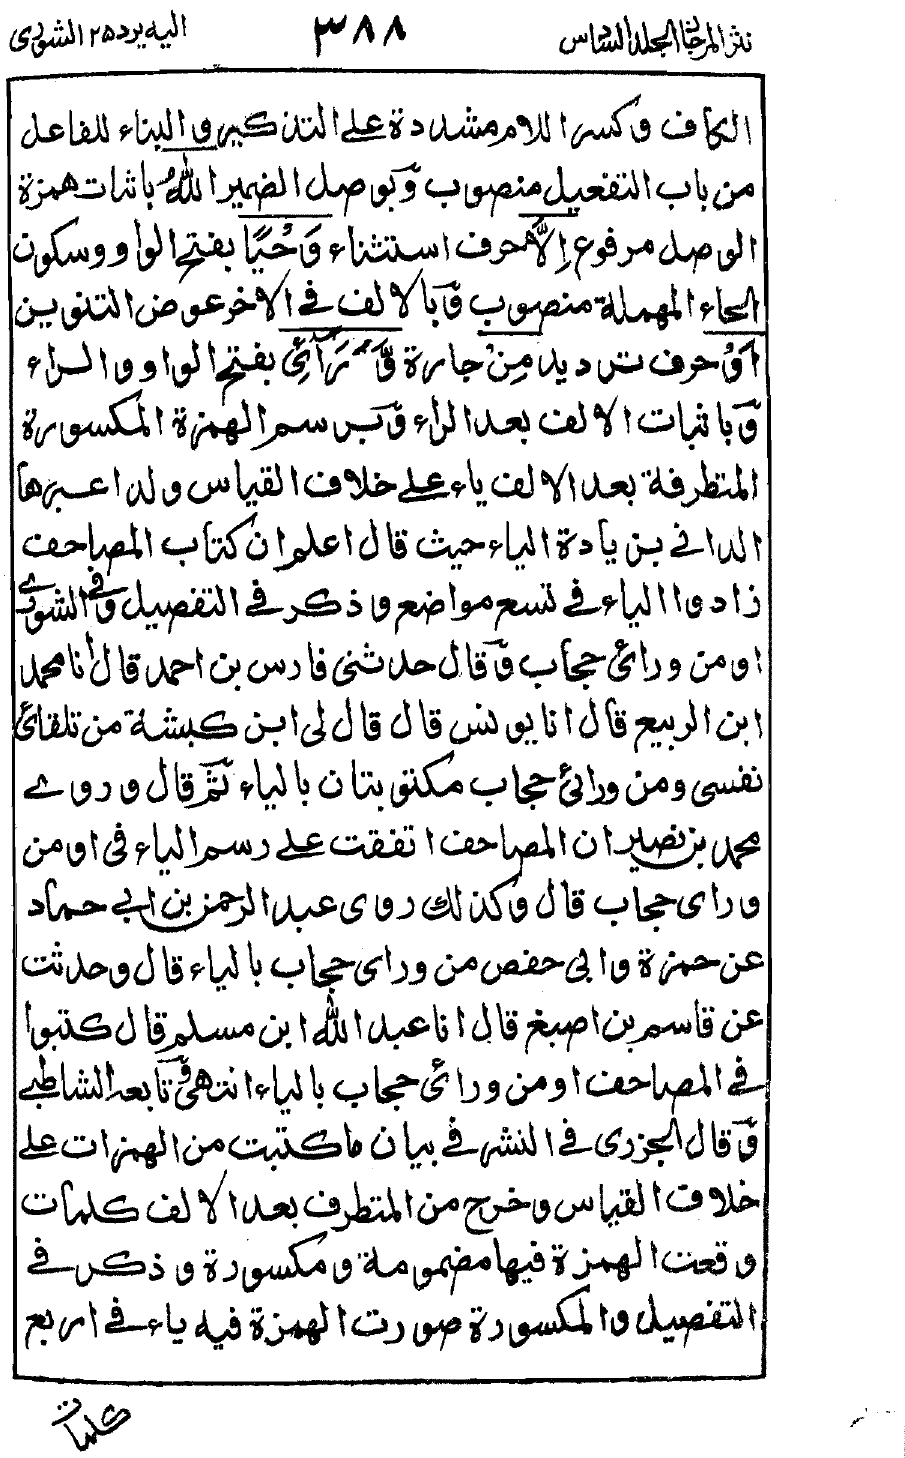 نثر المرجان المجلد السادس ٣٨٨ اليه يرد ٢٥ الشورى
الكاف وكسر اللام مشددة على التذكير والبناء للفاعل
من باب التفعيل منصوب وبوصل الضمير اللهُ باثبات همزة
الوصل مرفوع إِلَّا حرف استثناء وَحْيًا بفتح الواو وسكون
الحاء المهملة منصوب وبالالف في الاخر عوض التنوين
أَوْ حرف ترديد مِنْ جارة وَّرَآئِ بفتح الواو والراء
وباثبات الالف بعد الراء وبرسم الهمزة المكسورة
المتطرفة بعد الالف ياء على خلاف القياس ولذا عبرها
الداني بزيادة الياء حيث قال اعلم ان كتاب المصاحف
زادوا الياء في تسع مواضع وذكر في التفصيل وفي الشورى
او من ورائ حجاب وقال حدثنى فارس بن احمد قال انا محمد
ابن الربيع قال انا يونس قال قال لى ابن كبشة من تلقائ
نفسى ومن ورائ حجاب مكتوبتان بالياء ثم قال وروى
محمد بن نصير ان المصاحف اتفقت على رسم الياء فى او من
وراى حجاب قال وكذلك روى عبد الرحمن بن ابي حماد
عن حمزة وابى حفص من وراى حجاب بالياء قال وحدثت
عن قاسم بن اصبغ قال انا عبد الله ابن مسلم قال كتبوا
في المصاحف او من ورائ حجاب بالياء انتهى وتابعه الشاطبي
وقال الجزرى في النشر في بيان ما كتبت من الهمزات على
خلاف القياس وخرج من المتطرف بعد الالف كلمات
وقعت الهمزة فيها مضمومة ومكسورة وذكر في
التفصيل والمكسورة صورت الهمزة فيه ياء في اربع
كلمات